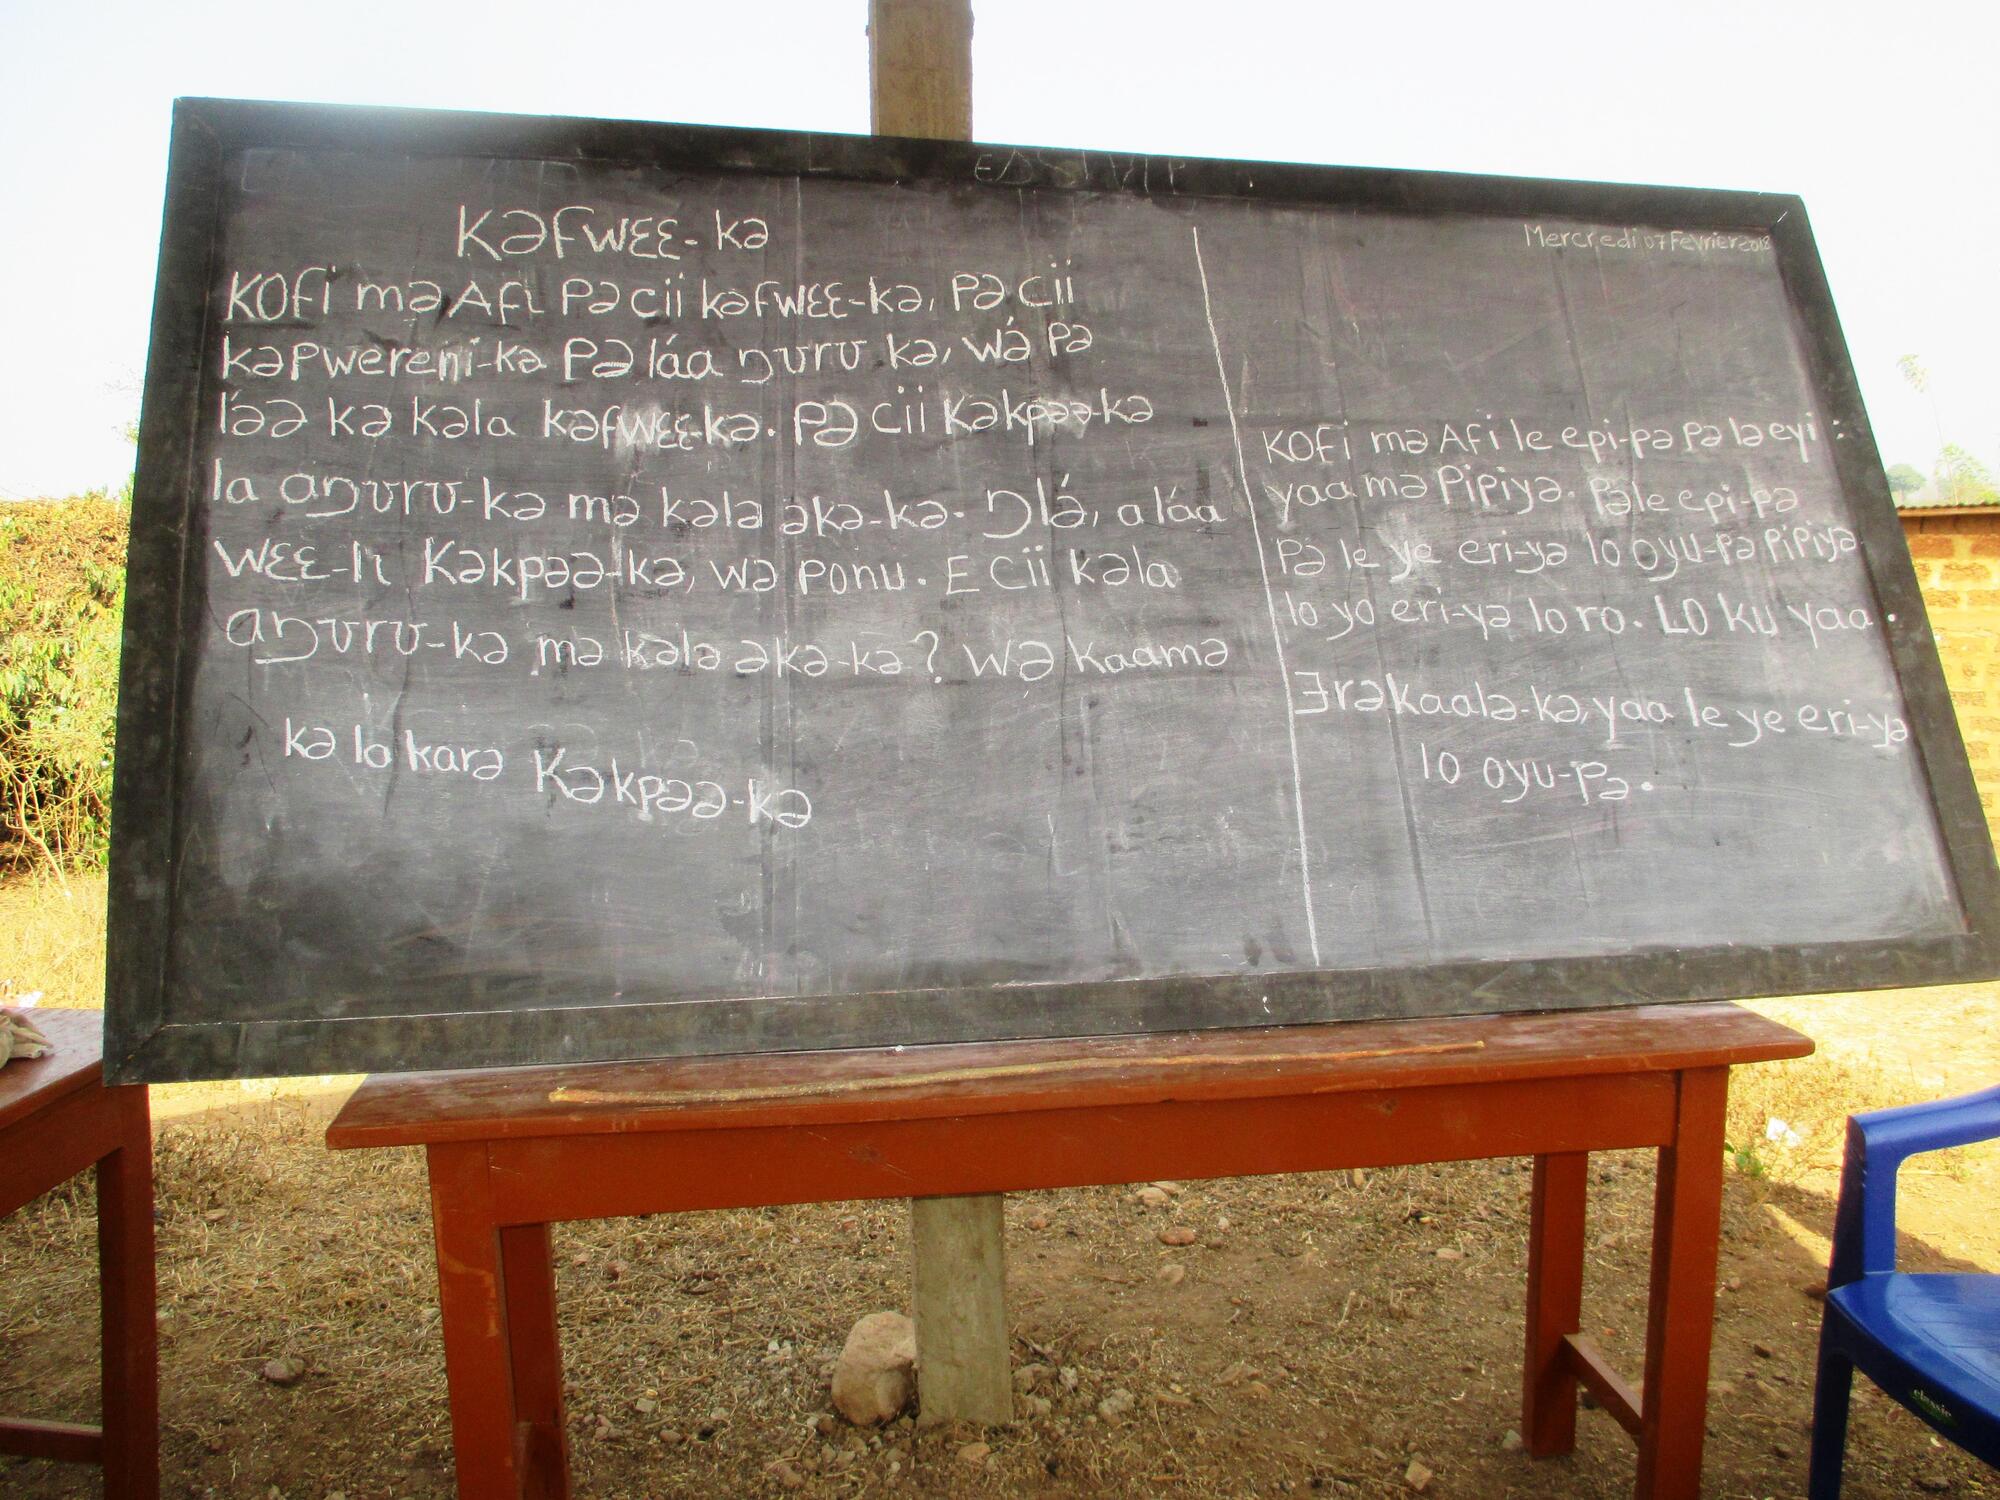 Kəfwɛɛ-kə
Kofi mə Afi Pə cii kəfwɛɛ-kə, Pə cii
kəpwereni-kə Pə láa ŋʋrʋ kə, wə́ Pə
lə́ə kə kəla kəfwɛɛ-kə. Pə cii Kəkpəə-kə
la aŋʋrʋ-kə mə kələ əkə-kə. Ŋlá, a láa
wɛɛ-lɩ Kəkpəə-kə, wə ponu. E cii kəla
aŋʋrʋ-kə mə kələ əkə-kə? Wə kaamə
kə lo karə Kəkpəə-kə
Mercredi 07 Fevrier 2018
Kofi mə Afi le epi-pə Pə lə eyi :
yaa mə Pipiyə. Pəle epi-pə
Pə le ye eri-yə lo oyu-pə Pipiyə
lo yo eri-yə lo ro. Lo ku yaa.
Ǝrəkaalə-kə, yaa le ye eri-yə
lo oyu-pə.
classic